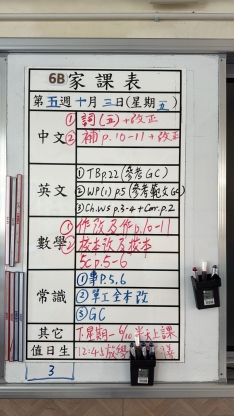 6B 家課表
第五週十月三日(星期五)
中文
① 詞(五)+改正
② 補p.10-11+改正
英文
① TB p.22(參考GC)
② WP(1) p.5(參考範文GC)
③ Ch.WS p.3-4+Corr. p.2
數學
① 作改及作p.10-11
② 校本改及校本
5c p.5-6
常識
① 事P.5,6
② 單工全本改
③ GC
其它
下星期一 6/10 半天上課
值日生
12:45放學
3